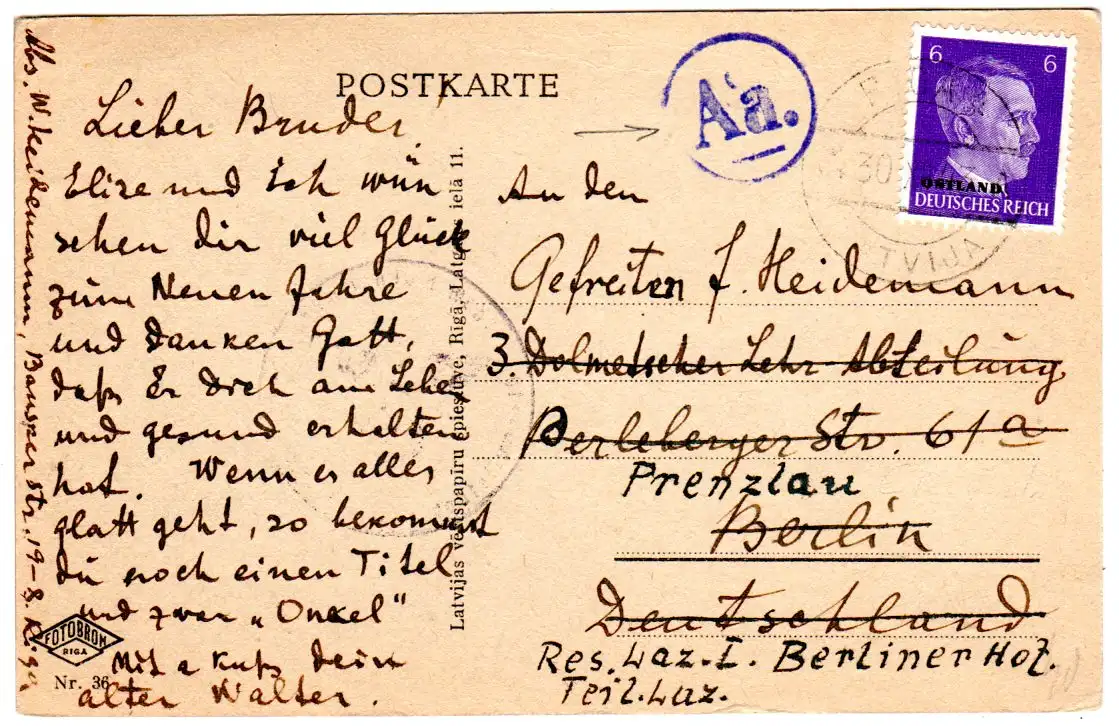 POSTKARTE
Lieber Bruder,
Elize und Ich wün
schen Dir viel Glück
zum Neuen Jahre
und danken Gott,
daß Er Dich am Leben
und gesund erhalten
hat. Wenn es alles
glatt geht, so bekommst
Du noch einen Titel
und zwar „Onkel“
Mit Kuß Dein
alter Walter.
Abs. W. Heidemann, Bausker str. 19-8. Riga
FOTOBROM
RIGA
Nr. 36
Latvijas vērtspapīru spiestuve, Rīgā, Latgales ielā 11.
Aa.
6 6
OSTLAND
DEUTSCHES REICH
30
LATVIJA
An den
Gefreiten f. Heidemann
3. Dolmetscher Lehr Abteilung
Perleberger Str. 61a
Prenzlau
Berlin
Deutschland
Res. Laz. I. Berliner Hof.
Teil. Laz.